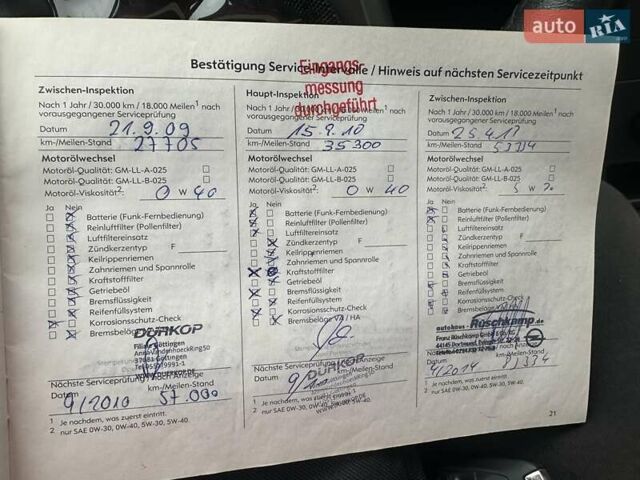 auto RIA
Bestätigung Service-Intervalle / Hinweis auf nächsten Servicezeitpunkt
Eingangs-
messung
durchgeführt
Zwischen-Inspektion
Nach 1 Jahr / 30.000 km / 18.000 Meilen¹ nach
vorausgegangener Serviceprüfung
Datum 21.9.09
km-/Meilen-Stand 27705
Motorölwechsel
Motoröl-Qualität: GM-LL-A-025
GM-LL-B-025
Motoröl-Viskosität²: 0 W 40
Ja Nein
Batterie (Funk-Fernbedienung)
Reinluftfilter (Pollenfilter)
Luftfiltereinsatz
Zündkerzentyp F
Keilrippenriemen
Zahnriemen und Spannrolle
Kraftstofffilter
Getriebeöl
Bremsflüssigkeit
Reifenfüllsystem
Korrosionsschutz-Check
Bremsbeläge
DÜRKOP
Filiale Göttingen
37081 Göttingen
Nächste Serviceprüfung / nach Anzeige
Datum km-/Meilen-Stand
9/2010 57.000
1 Je nachdem, was zuerst eintritt.
2 nur SAE 0W-30, 0W-40, 5W-30, 5W-40.
Haupt-Inspektion
Nach 1 Jahr / 30.000 km / 18.000 Meilen¹ nach
vorausgegangener Serviceprüfung
Datum 15.9.10
km-/Meilen-Stand 35300
Motorölwechsel
Motoröl-Qualität: GM-LL-A-025
GM-LL-B-025
Motoröl-Viskosität²: 0 W 40
Ja Nein
Batterie (Funk-Fernbedienung)
Reinluftfilter (Pollenfilter)
Luftfiltereinsatz
Zündkerzentyp F
Keilrippenriemen
Zahnriemen und Spannrolle
Kraftstofffilter
Getriebeöl
Bremsflüssigkeit
Reifenfüllsystem
Korrosionsschutz-Check
Bremsbeläge VA / HA
DÜRKOP
Nächste Serviceprüfung / nach Anzeige
Datum km-/Meilen-Stand
1 Je nachdem, was zuerst
2 nur SAE 0W-30, 0W-40, 5W-30, 5W-40.
Zwischen-Inspektion
Nach 1 Jahr / 30.000 km / 18.000 Meilen¹ nach
vorausgegangener Serviceprüfung
Datum
km-/Meilen-Stand 53334
Motorölwechsel
Motoröl-Qualität: GM-LL-A-025
GM-LL-B-025
Motoröl-Viskosität²: 5 W 30
Ja Nein
Batterie (Funk-Fernbedienung)
Reinluftfilter (Pollenfilter)
Luftfiltereinsatz
Zündkerzentyp F
Keilrippenriemen
Zahnriemen und Spannrolle
Kraftstofffilter
Getriebeöl
Bremsflüssigkeit
Reifenfüllsystem
Korrosionsschutz-Check
autohaus Rüschkamp
Franz Rüschkamp GmbH
Datum
1 Je nachdem, was zuerst eintritt.
2 nur SAE 0W-30, 0W-40, 5W-30, 5W-40.
21